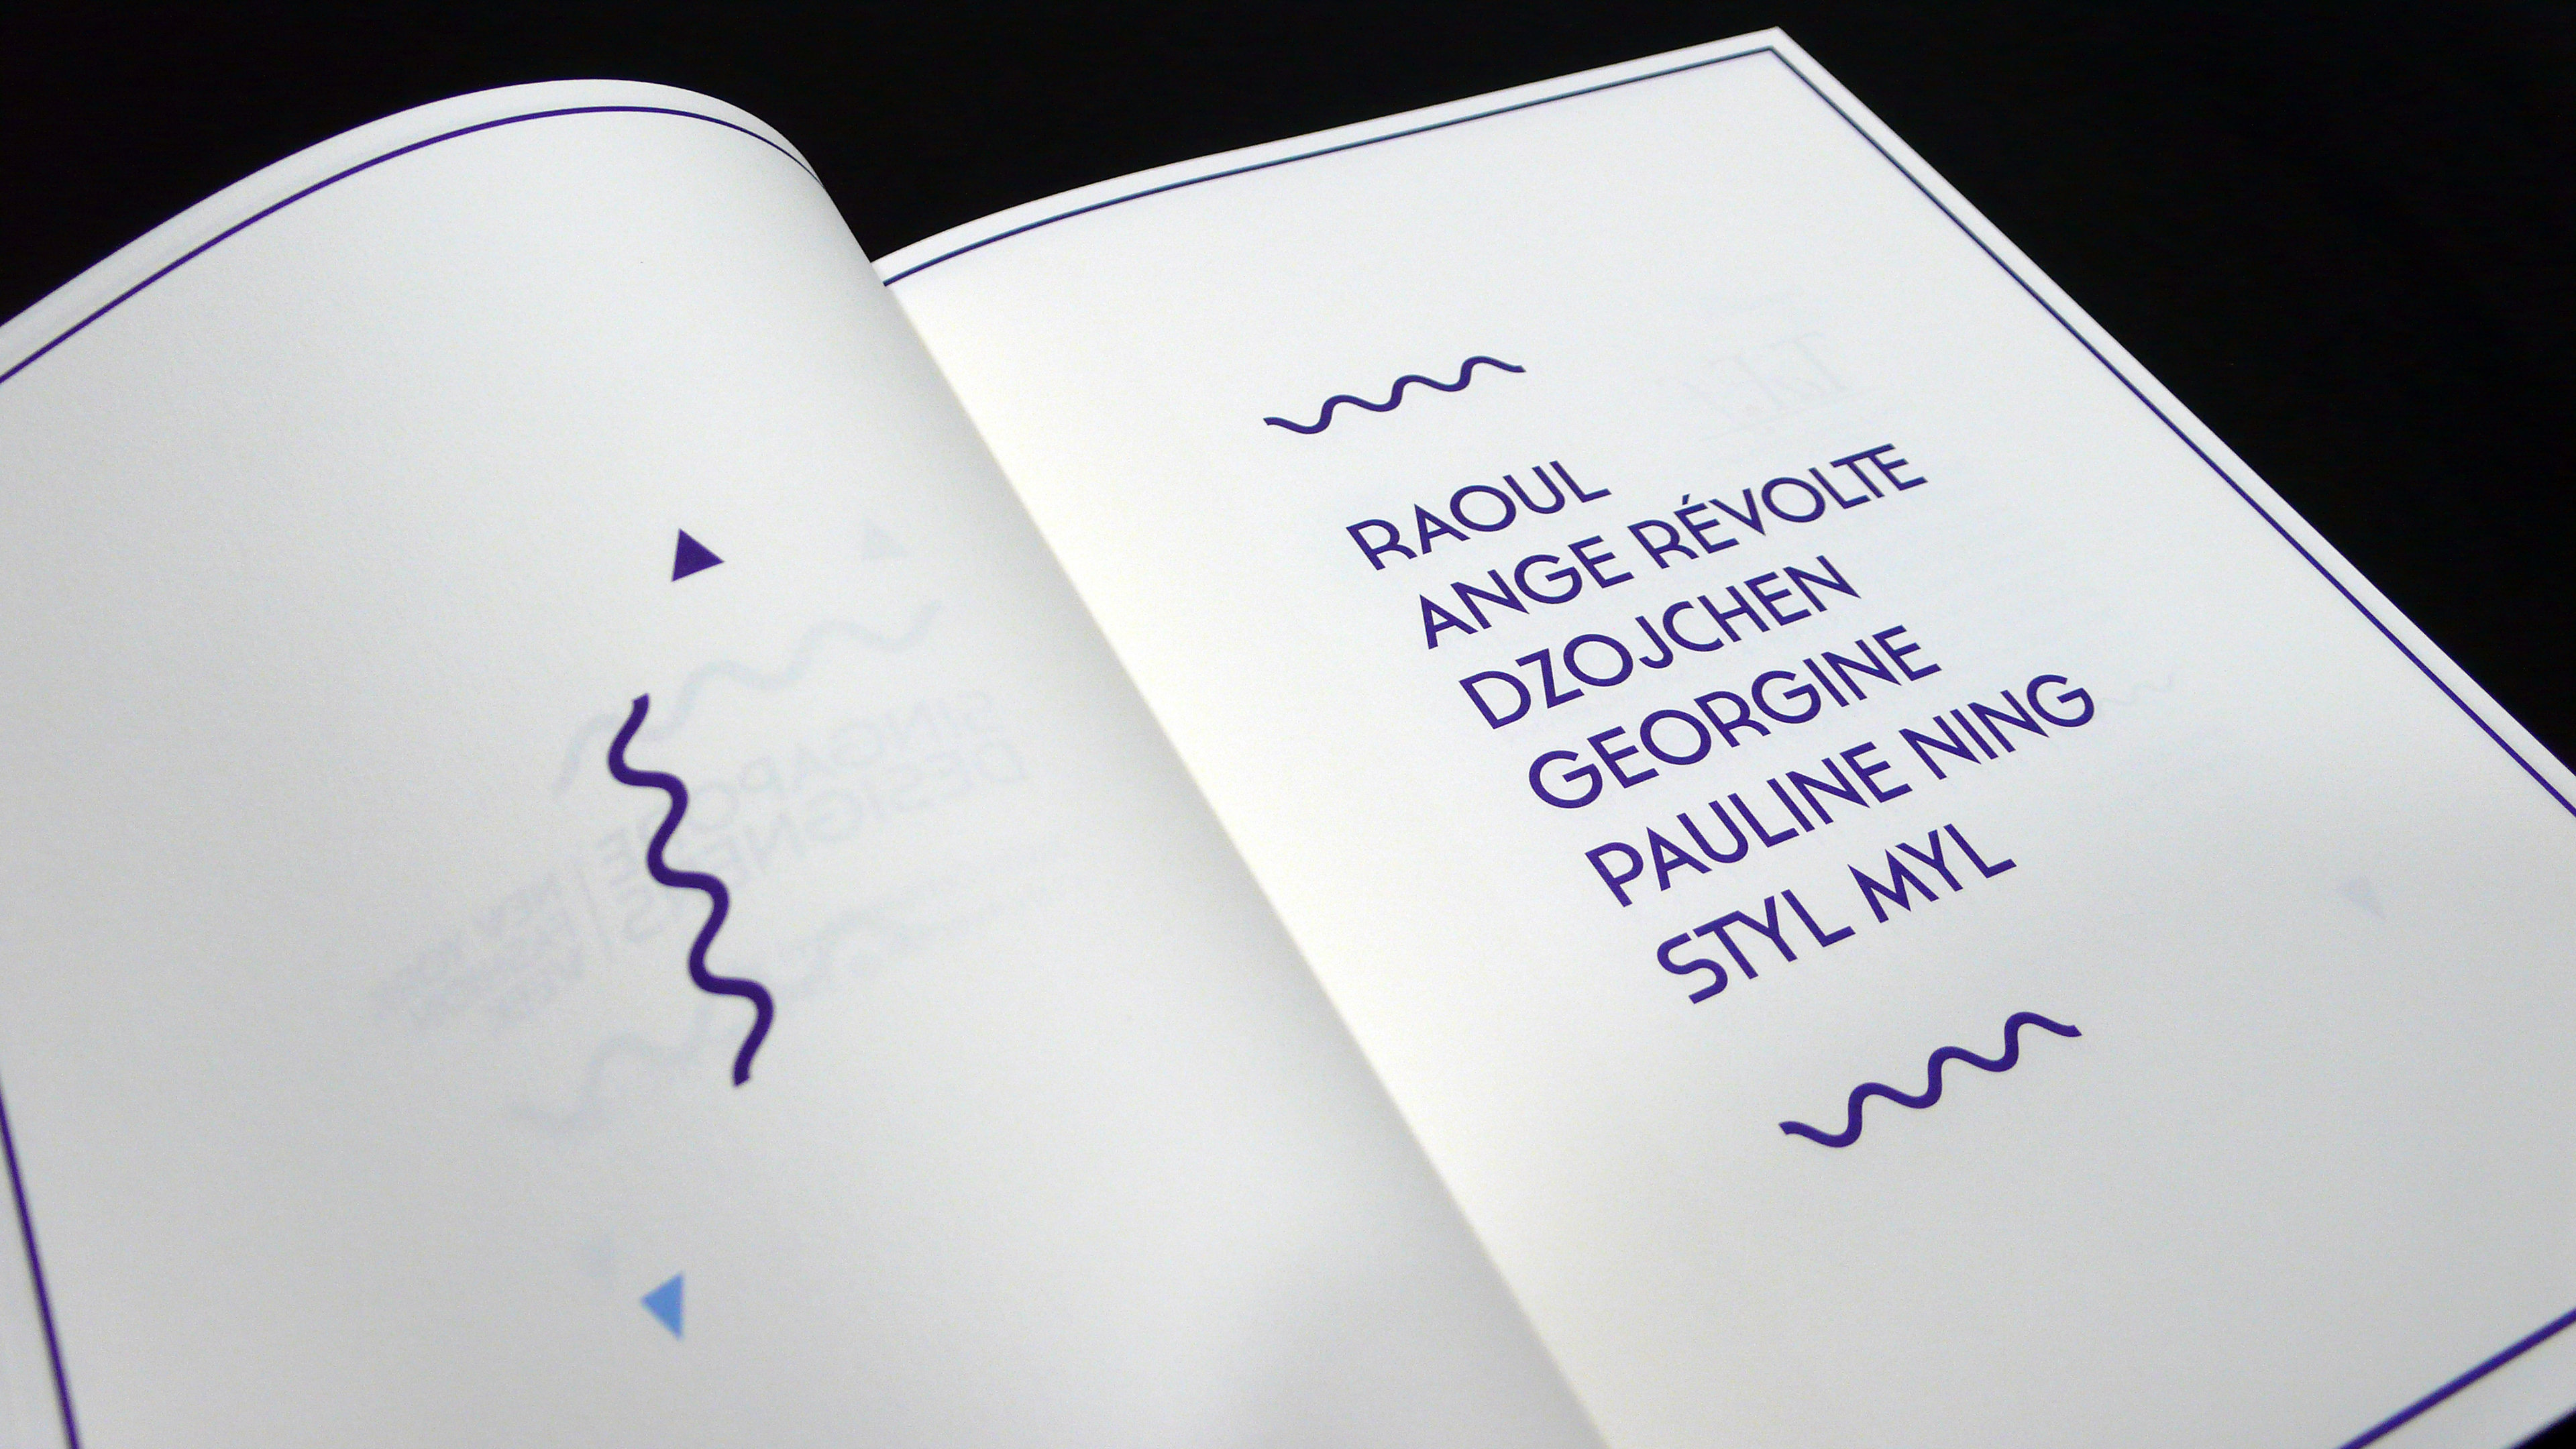 SINGAPORE
DESIGNERS
RAOUL
ANGE RÉVOLTE
DZOJCHEN
GEORGINE
PAULINE NING
STYL MYL